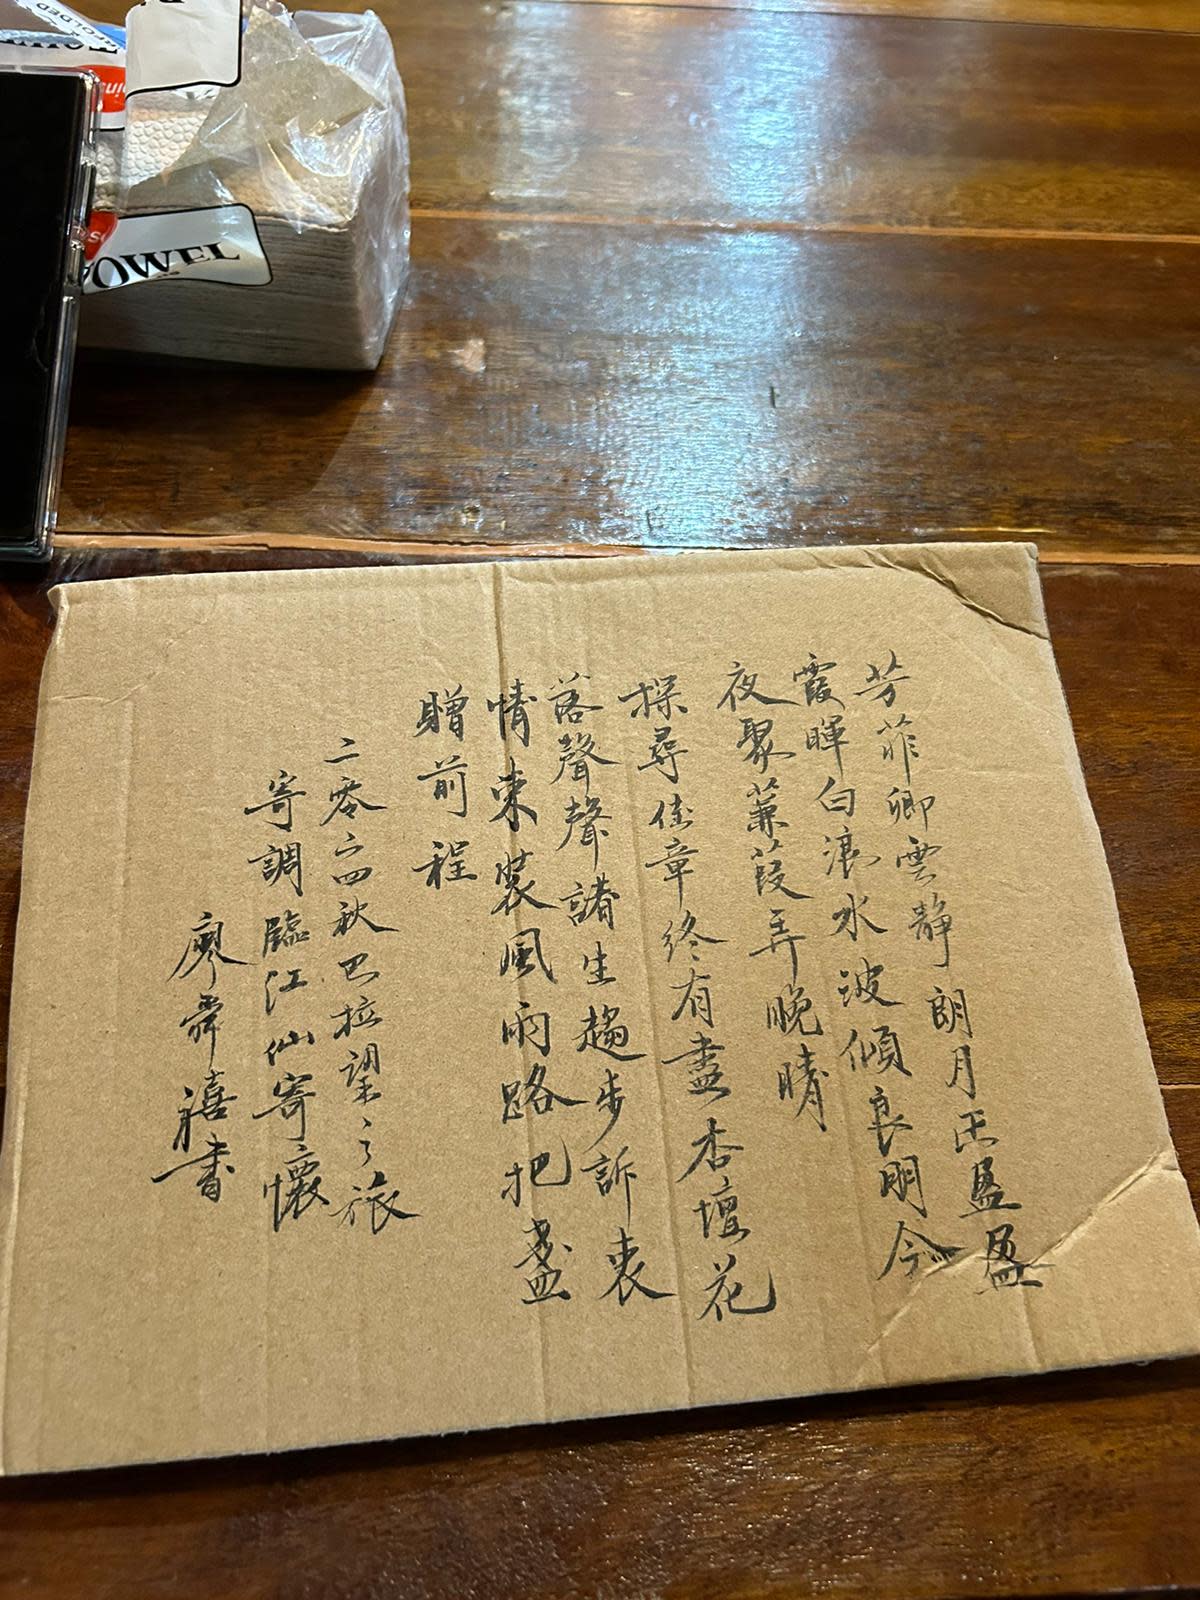 芳菲卿雲靜朗月正盈盈
霞暉白浪水波傾良朋今
夜聚蒹葭弄晚晴
探尋佳章終有盡杏壇花
落聲聲諸生趨步訴衷
情束裝風雨路把盞
贈前程
二零二四秋巴拉望之旅
寄調臨江仙寄懷
廖舜禧書
OWEL